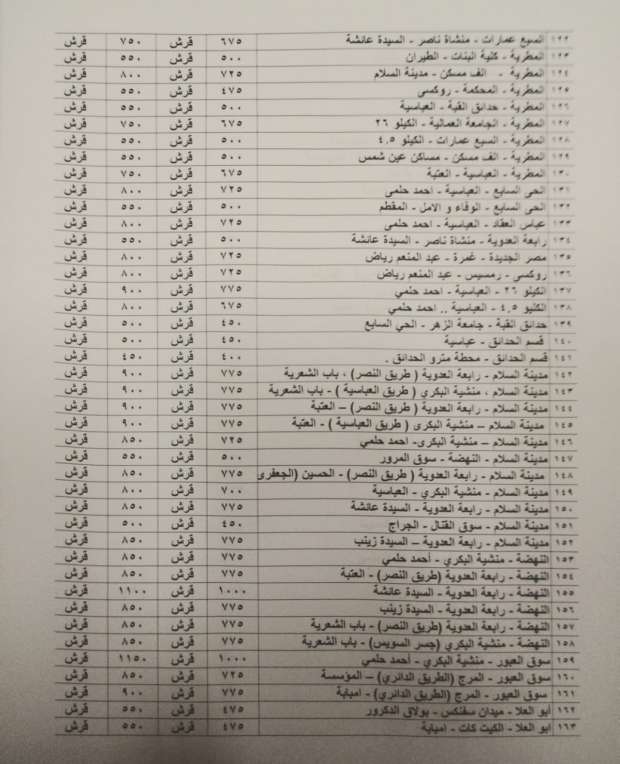 ١٢٢ السبع عمارات - منشاة ناصر - السيدة عائشة ٦٧٥ قرش ٧٥٠ قرش
١٢٣ المطرية - كلية البنات - الطيران ٥٠٠ قرش ٥٥٠ قرش
١٢٤ المطرية - الف مسكن - مدينة السلام ٧٢٥ قرش ٨٠٠ قرش
١٢٥ المطرية - المحكمة - روكسى ٤٧٥ قرش ٥٥٠ قرش
١٢٦ المطرية - حدائق القبة - العباسية ٥٠٠ قرش ٥٥٠ قرش
١٢٧ المطرية - الجامعة العمالية - الكيلو ٢٦ ٦٧٥ قرش ٧٥٠ قرش
١٢٨ المطرية - السبع عمارات - الكيلو ٤.٥ ٥٠٠ قرش ٥٥٠ قرش
١٢٩ المطرية - الف مسكن - مساكن عين شمس ٥٠٠ قرش ٥٥٠ قرش
١٣٠ المطرية - العباسية - العتبة ٦٧٥ قرش ٧٥٠ قرش
١٣١ الحى السابع - العباسية - احمد حلمى ٧٢٥ قرش ٨٠٠ قرش
١٣٢ الحى السابع - الوفاء و الامل - المقطم ٥٠٠ قرش ٥٥٠ قرش
١٣٣ عباس العقاد - العباسية - احمد حلمى ٧٢٥ قرش ٨٠٠ قرش
١٣٤ رابعة العدوية - منشاة ناصر - السيدة عائشة ٥٠٠ قرش ٥٥٠ قرش
١٣٥ مصر الجديدة - غمرة - عبد المنعم رياض ٧٢٥ قرش ٨٠٠ قرش
١٣٦ روكسى - رمسيس - عبد المنعم رياض ٧٢٥ قرش ٨٠٠ قرش
١٣٧ الكيلو ٢٦ - العباسية - احمد حلمي ٧٧٥ قرش ٩٠٠ قرش
١٣٨ الكليو ٤.٥ - العباسية .. احمد حلمي ٦٧٥ قرش ٨٠٠ قرش
١٣٩ حدائق القبة - جامعة الزهر - الحي السابع ٤٥٠ قرش ٥٠٠ قرش
١٤٠ قسم الحدائق - عباسية ٤٥٠ قرش ٥٠٠ قرش
١٤١ قسم الحدائق - محطة مترو الحدائق . ٤٠٠ قرش ٤٥٠ قرش
١٤٢ مدينة السلام - رابعة العدوية ( طريق النصر) ، باب الشعرية ٧٧٥ قرش ٩٠٠ قرش
١٤٣ مدينة السلام ، منشية البكري ( طريق العباسية ) - باب الشعرية ٧٧٥ قرش ٩٠٠ قرش
١٤٤ مدينة السلام - رابعة العدوية ( طريق النصر) – العتبة ٧٧٥ قرش ٩٠٠ قرش
١٤٥ مدينة السلام – منشية البكرى ( طريق العباسية ) - العتبة ٧٧٥ قرش ٩٠٠ قرش
١٤٦ مدينة السلام – منشية البكرى- احمد حلمي ٧٢٥ قرش ٨٥٠ قرش
١٤٧ مدينة السلام - النهضة - سوق المرور ٥٠٠ قرش ٥٥٠ قرش
١٤٨ مدينة السلام - رابعة العدوية ( طريق النصر) - الحسين (الجعفرى ٧٧٥ قرش ٨٥٠ قرش
١٤٩ مدينة السلام - منشية البكري - العباسية ٧٠٠ قرش ٨٠٠ قرش
١٥٠ مدينة السلام - رابعة العدوية - السيدة عائشة ٧٧٥ قرش ٨٥٠ قرش
١٥١ مدينة السلام - سوق القنال - الجراج ٤٥٠ قرش ٥٠٠ قرش
١٥٢ مدينة السلام - رابعة العدوية – السيدة زينب ٧٧٥ قرش ٨٥٠ قرش
١٥٣ النهضة - منشية البكري - أحمد حلمي ٧٧٥ قرش ٨٥٠ قرش
١٥٤ النهضة - رابعة العدوية (طريق النصر) - العتبة ٧٧٥ قرش ٨٥٠ قرش
١٥٥ النهضة - رابعة العدوية - السيدة عائشة ١٠٠٠ قرش ١١٠٠ قرش
١٥٦ النهضة - رابعة العدوية - السيدة زينب ٧٧٥ قرش ٨٥٠ قرش
١٥٧ النهضة - رابعة العدوية (طريق النصر) - باب الشعرية ٧٧٥ قرش ٨٥٠ قرش
١٥٨ النهضة - منشية البكري (جسر السويس) - باب الشعرية ٧٧٥ قرش ٨٥٠ قرش
١٥٩ سوق العبور - منشية البكري - أحمد حلمي ١٠٠٠ قرش ١١٥٠ قرش
١٦٠ سوق العبور - المرج (الطريق الدائري) – المؤسسة ٧٢٥ قرش ٨٥٠ قرش
١٦١ سوق العبور - المرج (الطريق الدائري) - امبابة ٧٧٥ قرش ٩٠٠ قرش
١٦٢ أبو العلا - ميدان سفنكس - بولاق الدكرور ٤٧٥ قرش ٥٥٠ قرش
١٦٣ أبو العلا - الكيت كات - امبابة ٤٧٥ قرش ٥٥٠ قرش